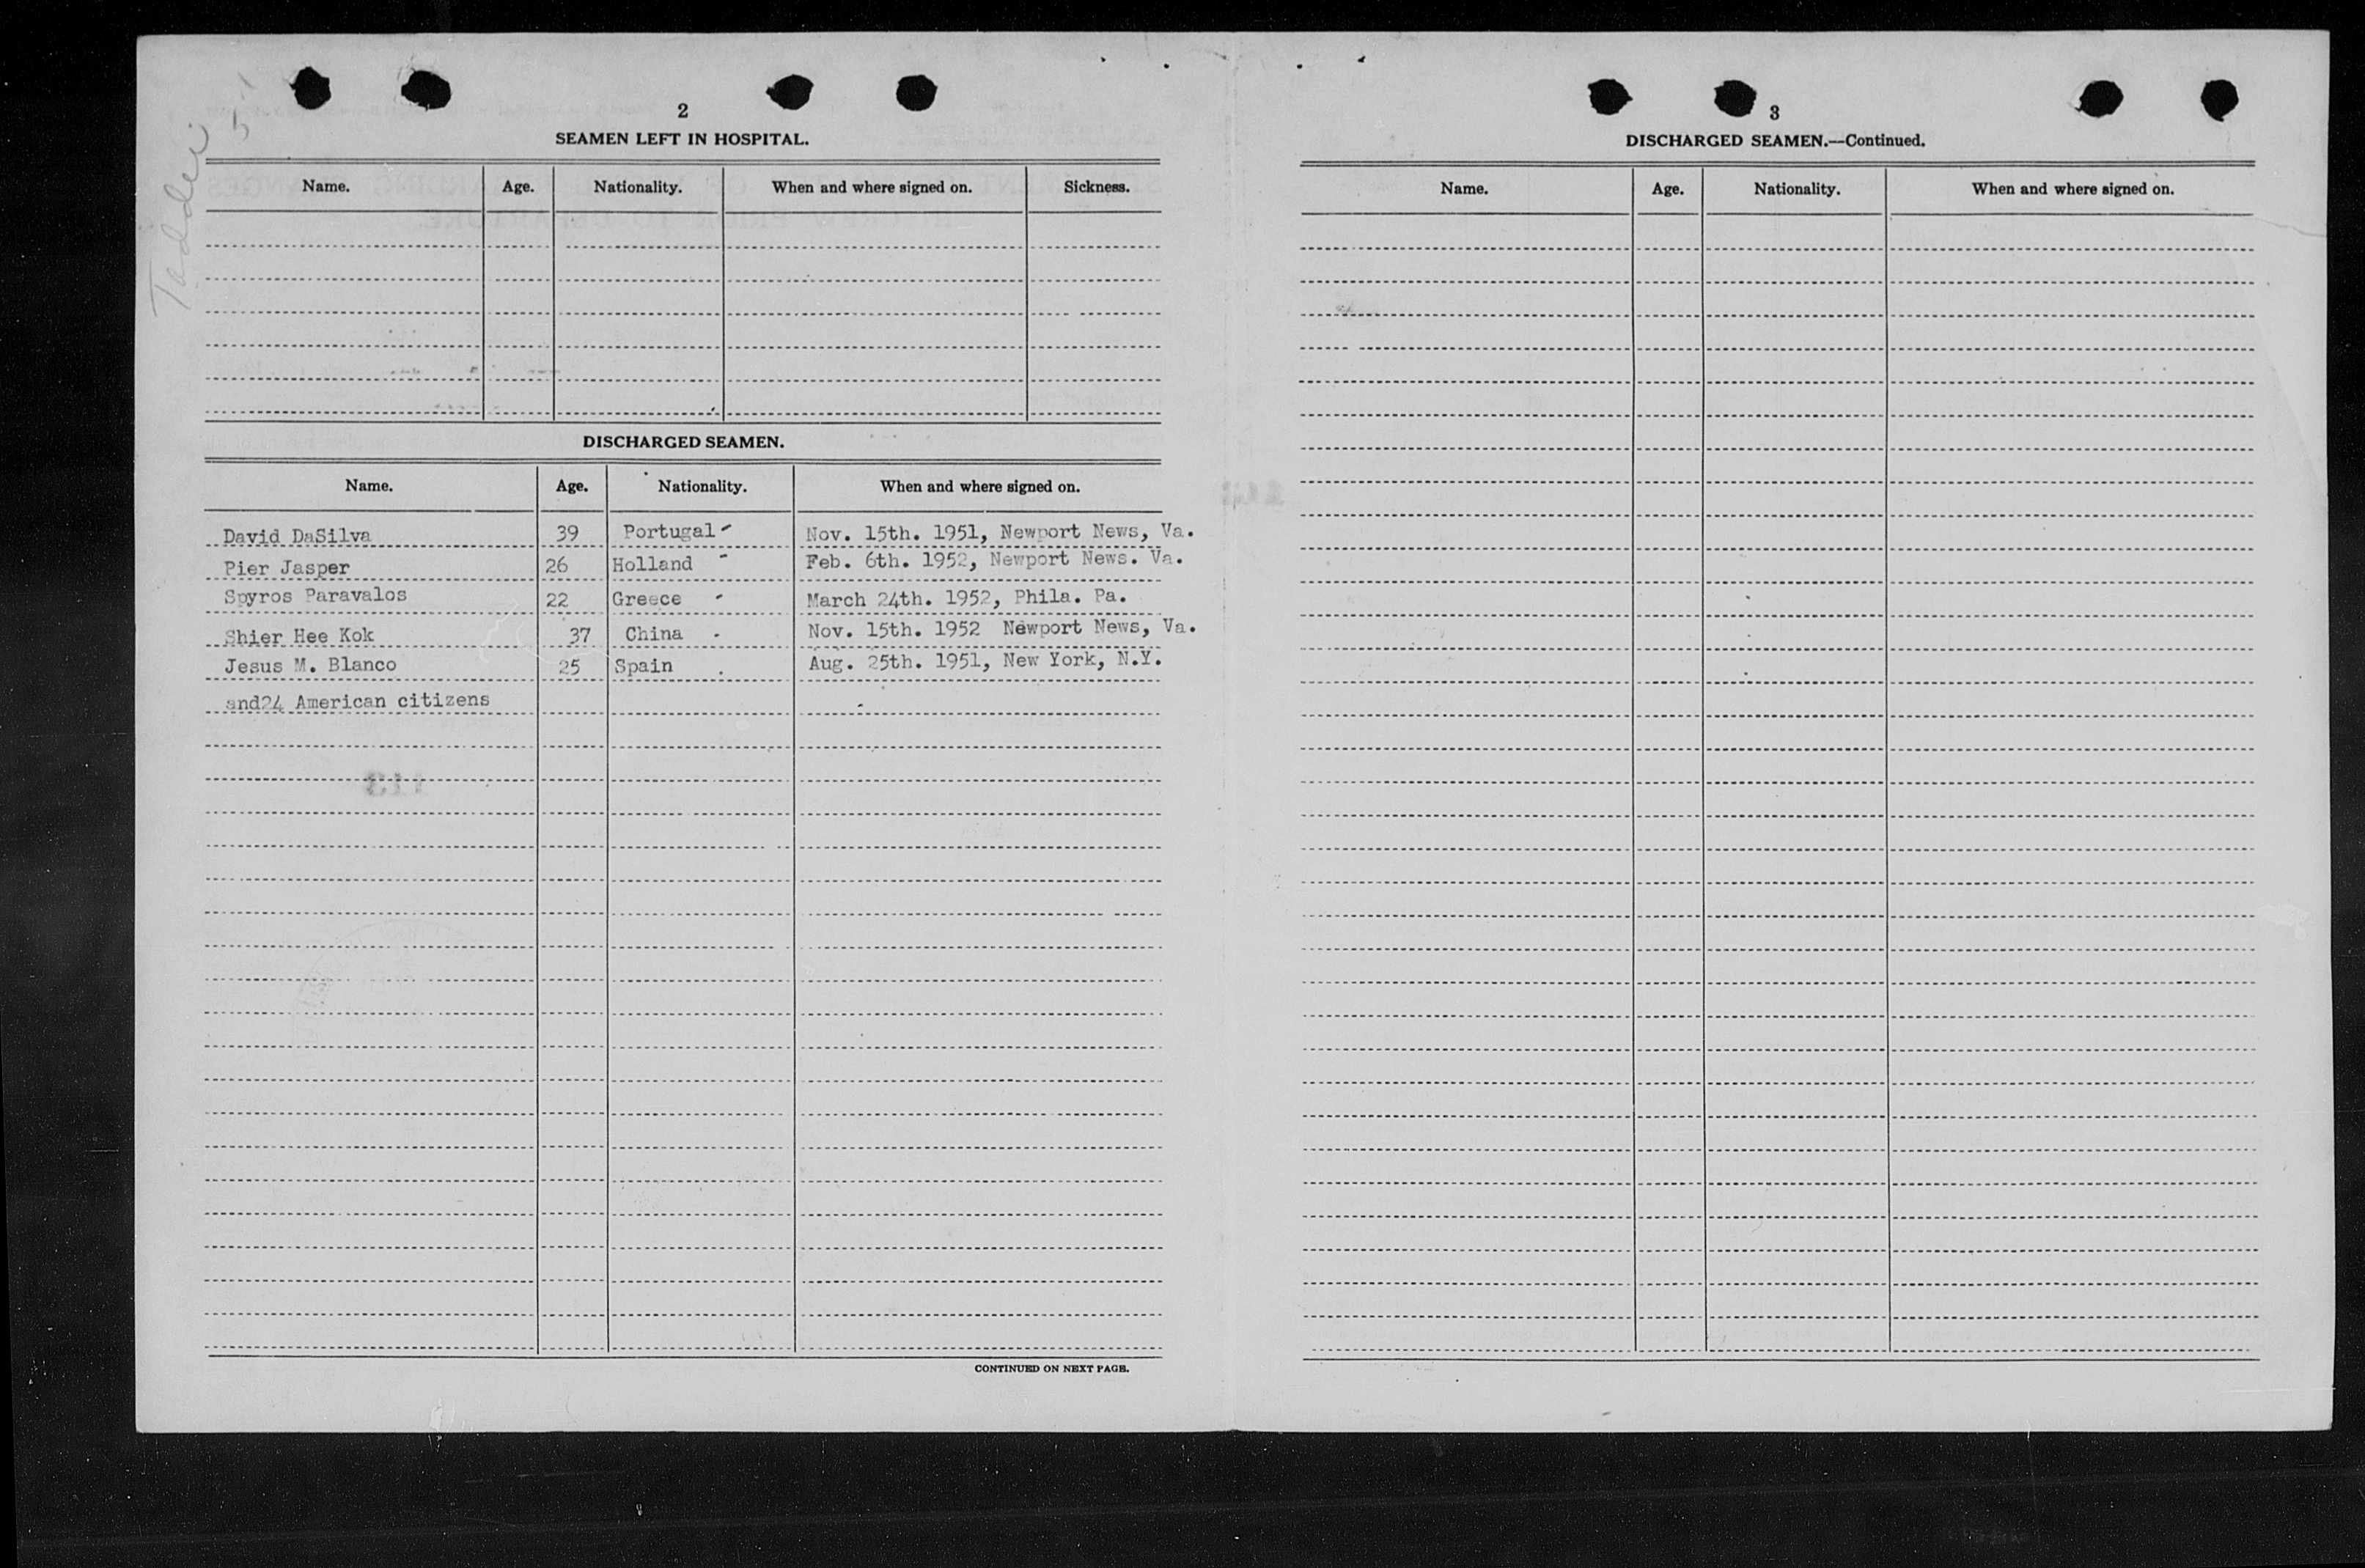 2
SEAMEN LEFT IN HOSPITAL.
Name. Age. Nationality. When and where signed on. Sickness.
DISCHARGED SEAMEN.
Name. Age. Nationality. When and where signed on.
David DaSilva 39 Portugal Nov. 15th. 1951, Newport News, Va.
Pier Jasper 26 Holland Feb. 6th. 1952, Newport News. Va.
Spyros Paravalos 22 Greece March 24th. 1952, Phila. Pa.
Shier Hee Kok 37 China Nov. 15th. 1952 Newport News, Va.
Jesus M. Blanco 25 Spain Aug. 25th. 1951, New York, N.Y.
and24 American citizens
CONTINUED ON NEXT PAGE.
3
DISCHARGED SEAMEN.—Continued.
Name. Age. Nationality. When and where signed on.